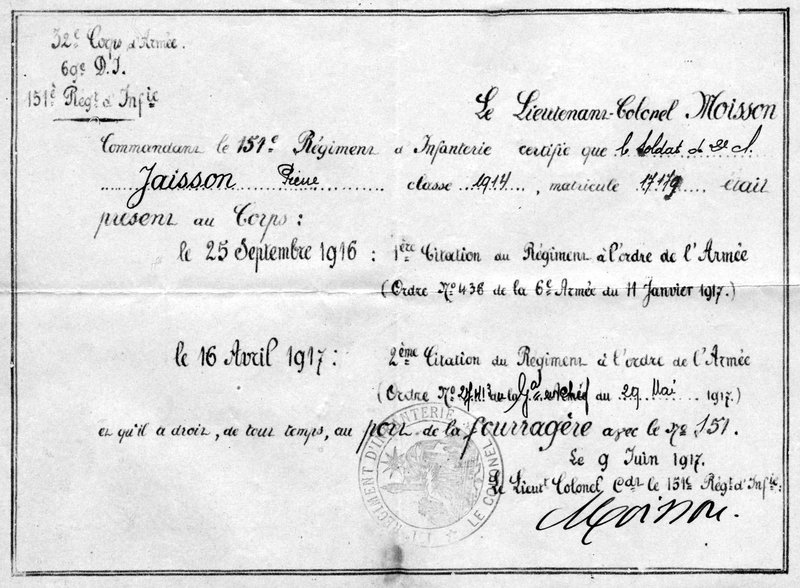 32e Corps d'Armée.
69e D.I.
151e Régt d'Infie
Le Lieutenant-Colonel Moisson
Commandant le 151e Régiment d'Infanterie certifie que le soldat de 2e cl.
Jaisson Pierre classe 1914, matricule 17179 était
présent au Corps :
le 25 Septembre 1916 : 1ère Citation du Régiment à l'ordre de l'Armée
(Ordre No 438 de la 6e Armée du 11 Janvier 1917.)
le 16 Avril 1917 : 2ème Citation du Régiment à l'ordre de l'Armée
(Ordre No du 29 Mai 1917.)
et qu'il a droit, de tout temps, au port de la fourragère avec le No 151.
Le 9 Juin 1917.
Le Lieut Colonel Cdt le 151e Régt d'Infie :
Moisson.
RÉGIMENT D'INFANTERIE
LE COLONEL